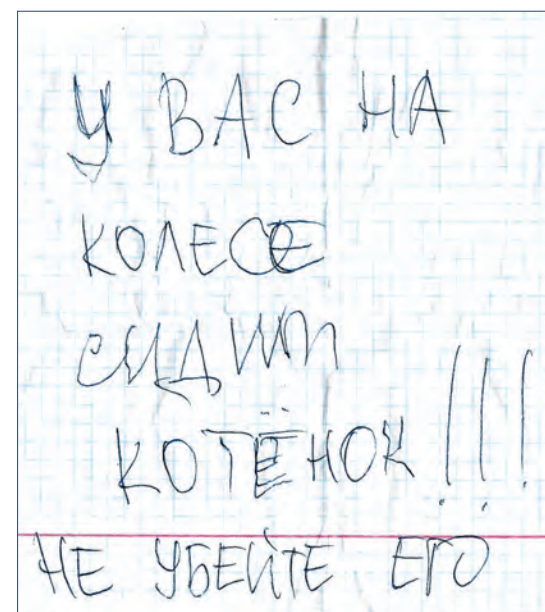 У ВАС НА
КОЛЕСЕ
СИДИТ
КОТЁНОК!!!
НЕ УБЕЙТЕ ЕГО